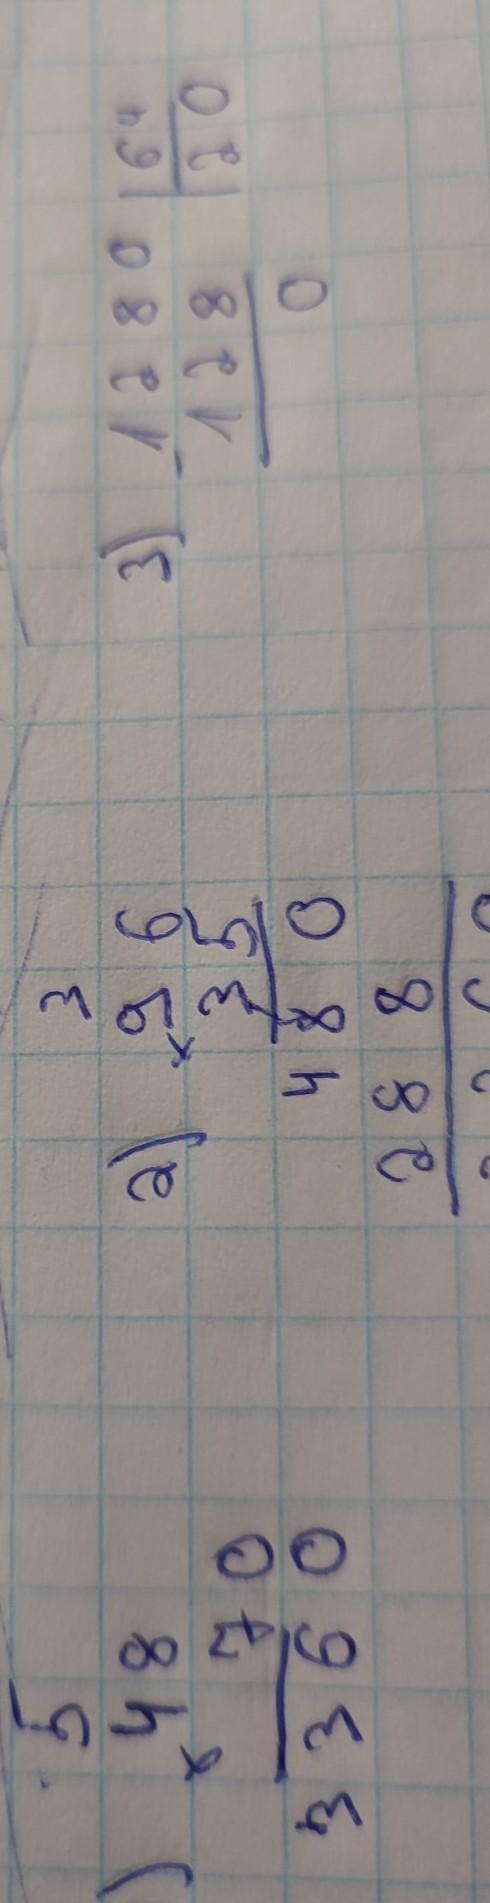 )
5
48
×
70
3360
2)
3
96
×
35
480
288
3)
1280 | 64
-
128 | 20
0